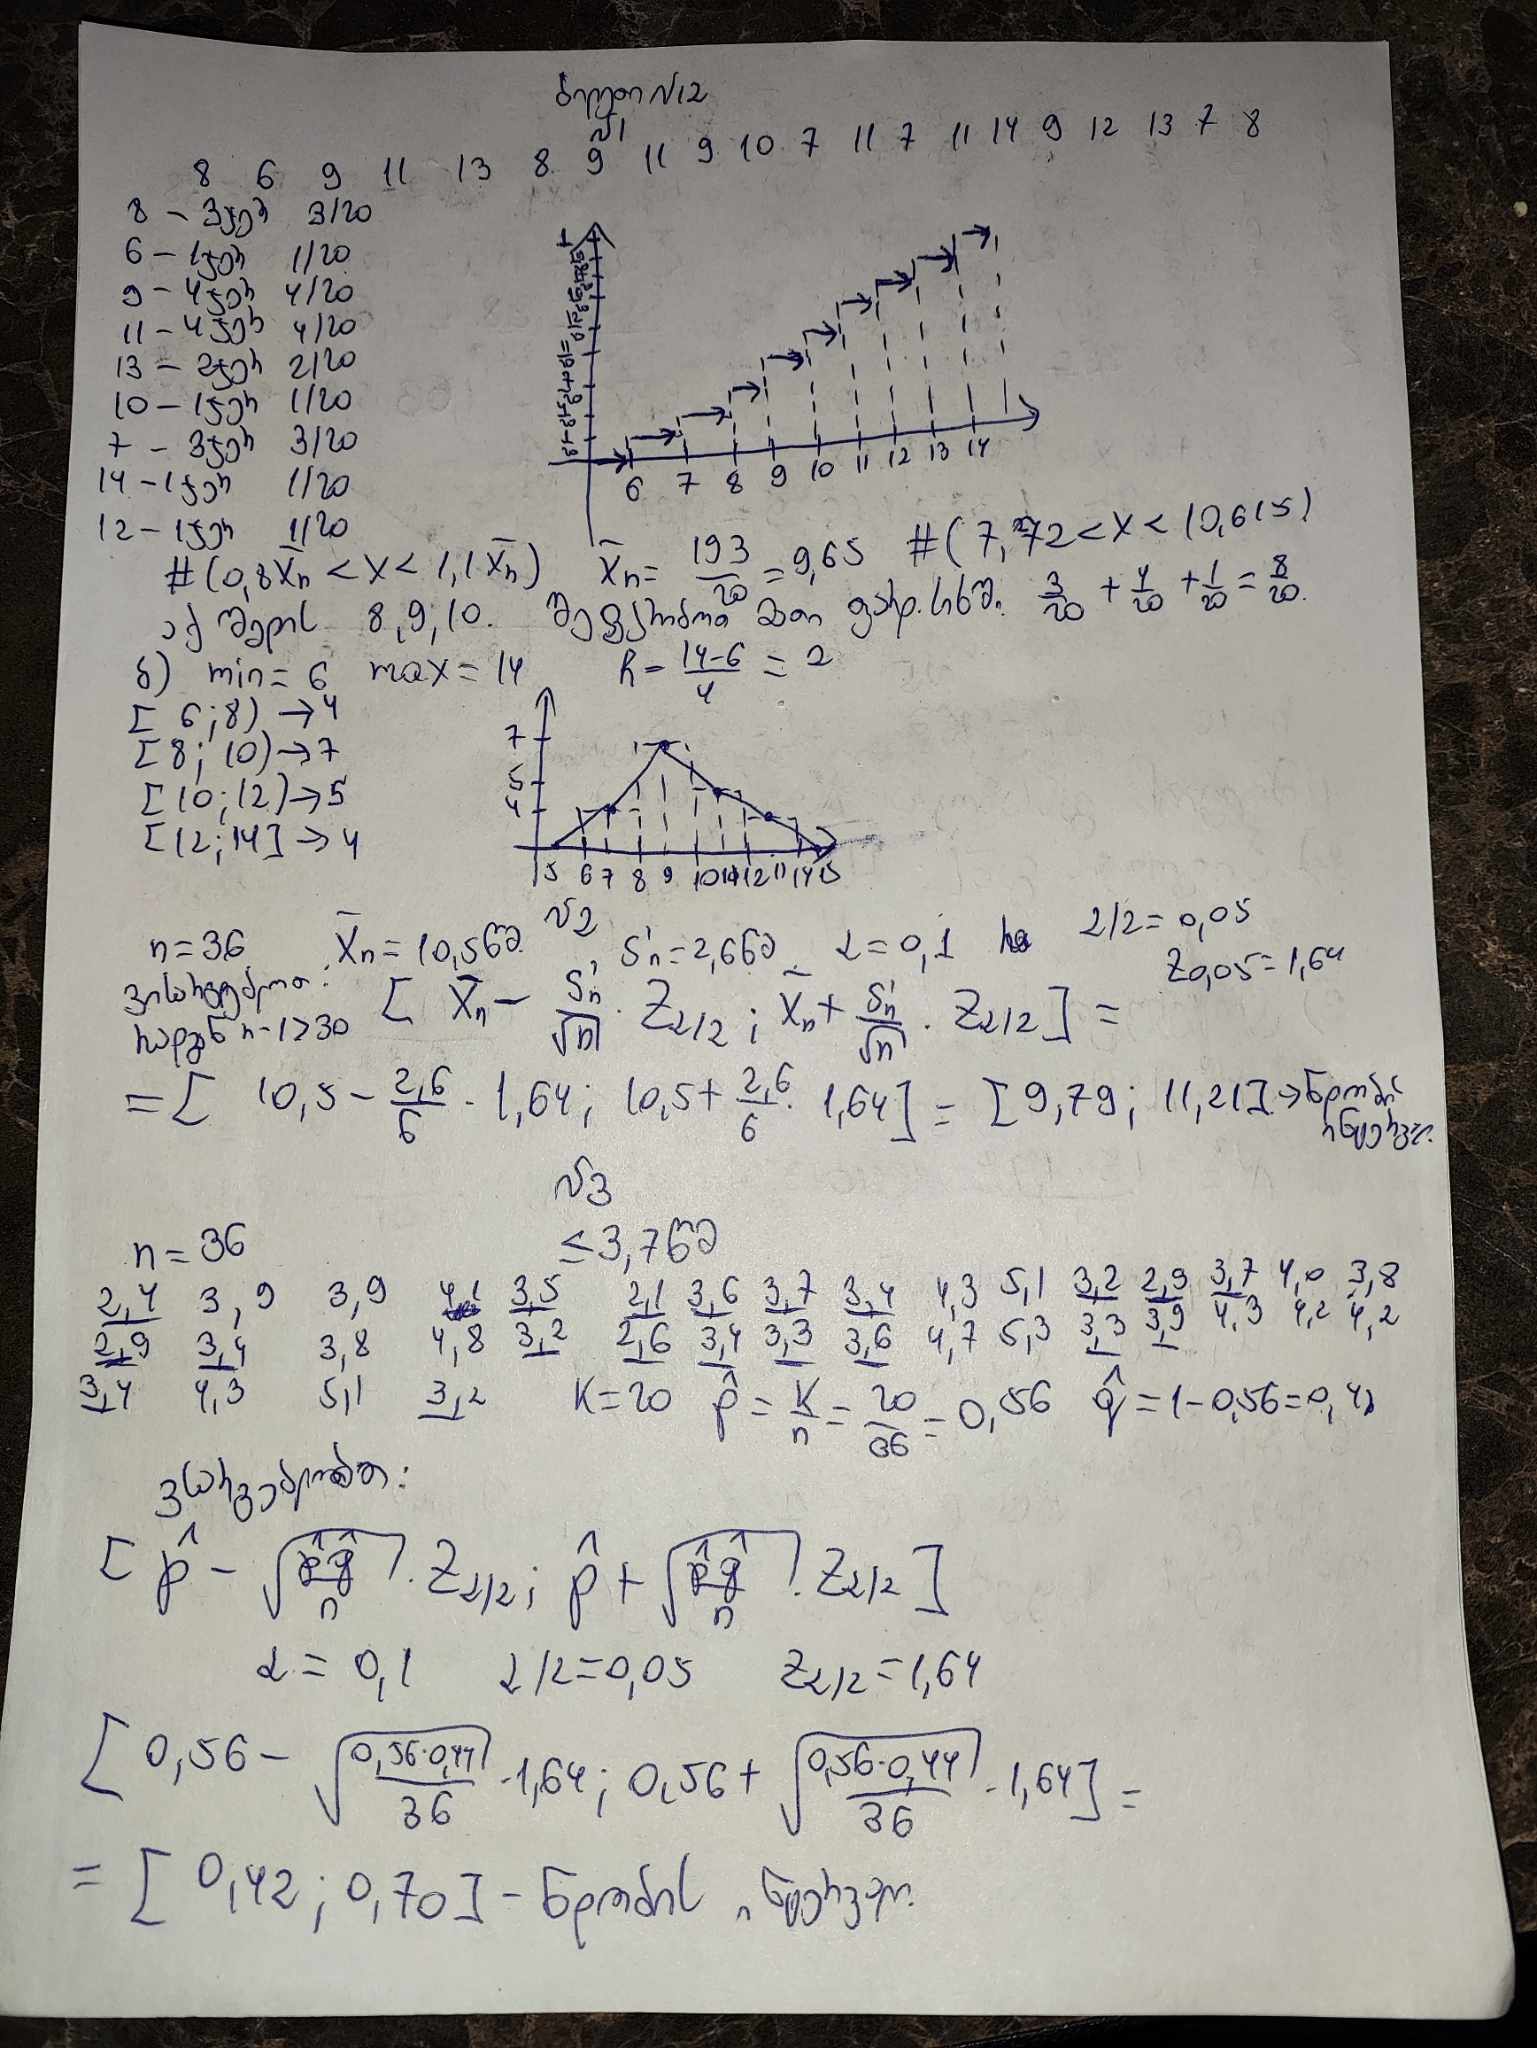 ბილეთი №12
№1
8 6 9 11 13 8 9 11 9 10 7 11 7 11 14 9 12 13 7 8
8 – 3ჯერ 3/20
6 – 1ჯერ 1/20
9 – 4ჯერ 4/20
11 – 4ჯერ 4/20
13 – 2ჯერ 2/20
10 – 1ჯერ 1/20
7 – 3ჯერ 3/20
14 – 1ჯერ 1/20
12 – 1ჯერ 1/20
6 7 8 9 10 11 12 13 14
#(0,8X̄n < X < 1,1X̄n) X̄n = 193/20 = 9,65 #(7,72 < X < 10,615)
აქ შედის 8, 9, 10. შევკრიბოთ მათი ფარდ. სიხშ. 3/20 + 4/20 + 1/20 = 8/20.
ბ) min = 6 max = 14 h = 14-6/4 = 2
[6;8) → 4
[8; 10) → 7
[10;12) → 5
[12;14] → 4
7
5
4
5 6 7 8 9 10 11 12 13 14 15
№2
n = 36 X̄n = 10,5წმ S'n = 2,6წმ α = 0,1 α/2 = 0,05
Z0,05 = 1,64
ვისარგებლოთ:
რადგან n-1>30 [X̄n – S'n/√n · Zα/2 ; X̄n + S'n/√n · Zα/2] =
= [10,5 – 2,6/6 · 1,64; 10,5 + 2,6/6 · 1,64] = [9,79; 11,21] → ნდობის
ინტერვ.
№3
n = 36 ≤ 3,7წმ
2,4 3,9 3,9 4,1 3,5 2,1 3,6 3,7 3,4 4,3 5,1 3,2 2,9 3,7 4,0 3,8
2,9 3,4 3,8 4,8 3,2 2,6 3,4 3,3 3,6 4,7 5,3 3,3 3,9 4,3 4,2 4,2
3,4 4,3 5,1 3,2 K = 20 p̂ = K/n = 20/36 = 0,56 q̂ = 1 – 0,56 = 0,44
ვსარგებლობთ:
[p̂ – √(p̂q̂/n) · Zα/2; p̂ + √(p̂q̂/n) · Zα/2]
α = 0,1 α/2 = 0,05 Zα/2 = 1,64
[0,56 – √(0,56·0,44/36) · 1,64; 0,56 + √(0,56·0,44/36) · 1,64] =
= [0,42; 0,70] – ნდობის ინტერვალ.